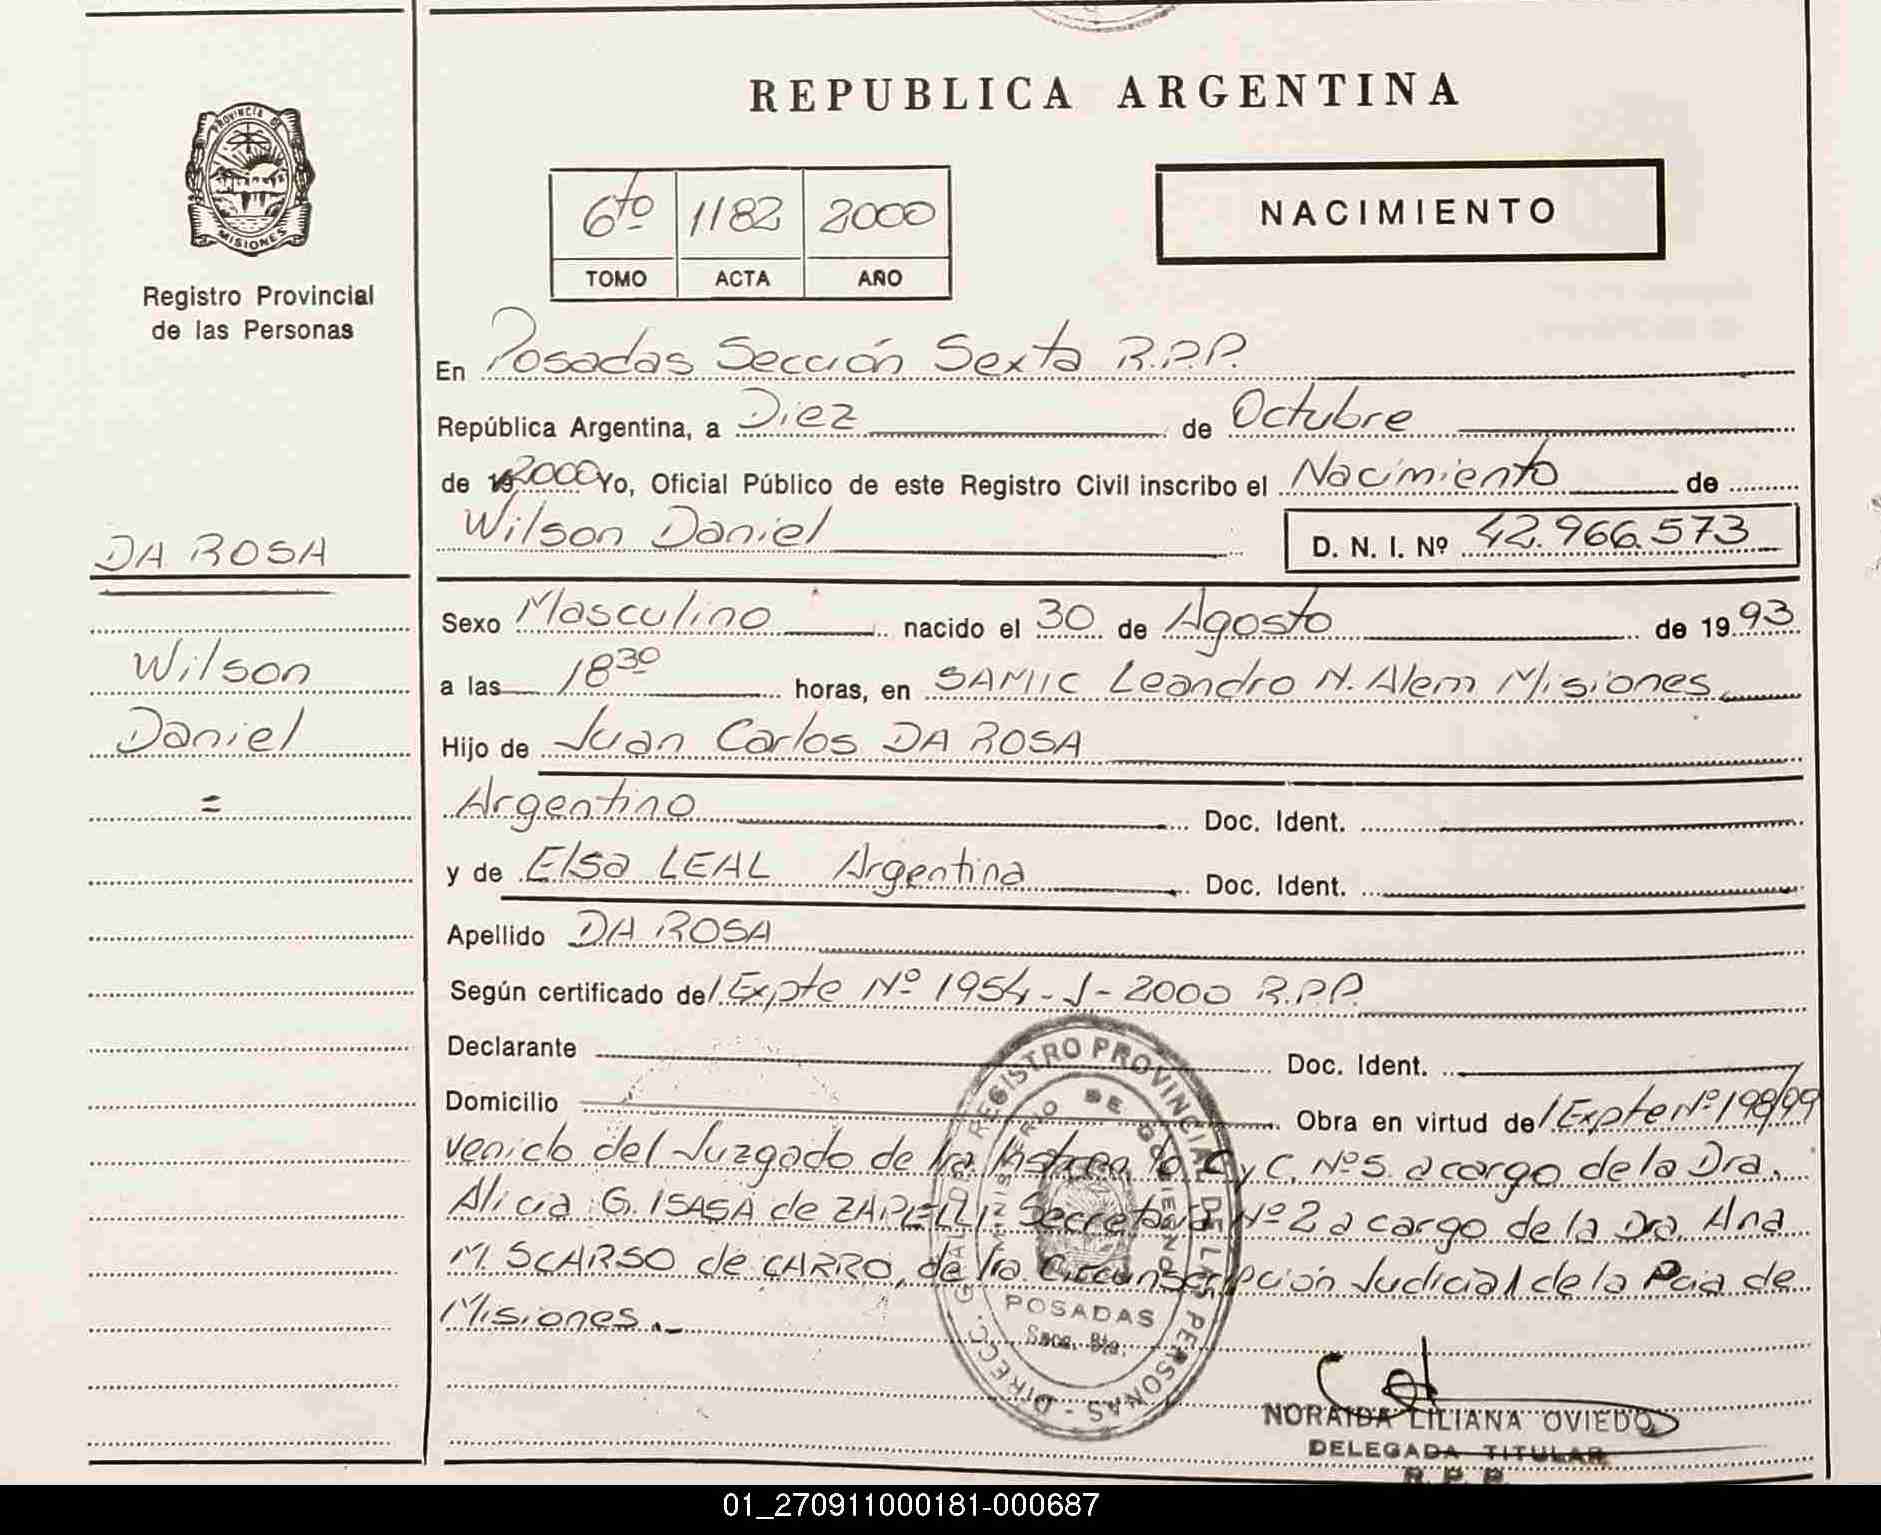 REPUBLICA ARGENTINA
PROVINCIA DE
MISIONES
Registro Provincial
de las Personas
6to 1182 2000
TOMO ACTA AÑO
NACIMIENTO
En Posadas Sección Sexta R.P.P.
República Argentina, a Diez de Octubre
de 19 2000 Yo, Oficial Público de este Registro Civil inscribo el Nacimiento de
Wilson Daniel D. N. I. Nº 42.966.573
DA ROSA
Wilson
Daniel
=
Sexo Masculino nacido el 30 de Agosto de 19 93
a las 18 30 horas, en SAMIC Leandro N. Alem Misiones
Hijo de Juan Carlos DA ROSA
Argentino Doc. Ident.
y de Elsa LEAL Argentina Doc. Ident.
Apellido DA ROSA
Según certificado del Expte Nº 1954-J-2000 R.P.P.
Declarante Doc. Ident.
Domicilio Obra en virtud del Expte Nº 198/99
venido del Juzgado de 1ra C y C. Nº 5 a cargo de la Dra.
Alicia G. ISASA de Secretaria Nº 2 a cargo de la Dra. Ana
M. SCARSO de CARRO, de 1ra Circunscripción Judicial de la Pcia de
Misiones.
DIRECC. GRAL. REGISTRO PROVINCIAL DE LAS PERSONAS
MINISTERIO DE GOBIERNO
POSADAS
Secc. 6ta.
NORAIDA LILIANA OVIEDO
DELEGADA TITULAR
R. P. P.
01_270911000181-000687